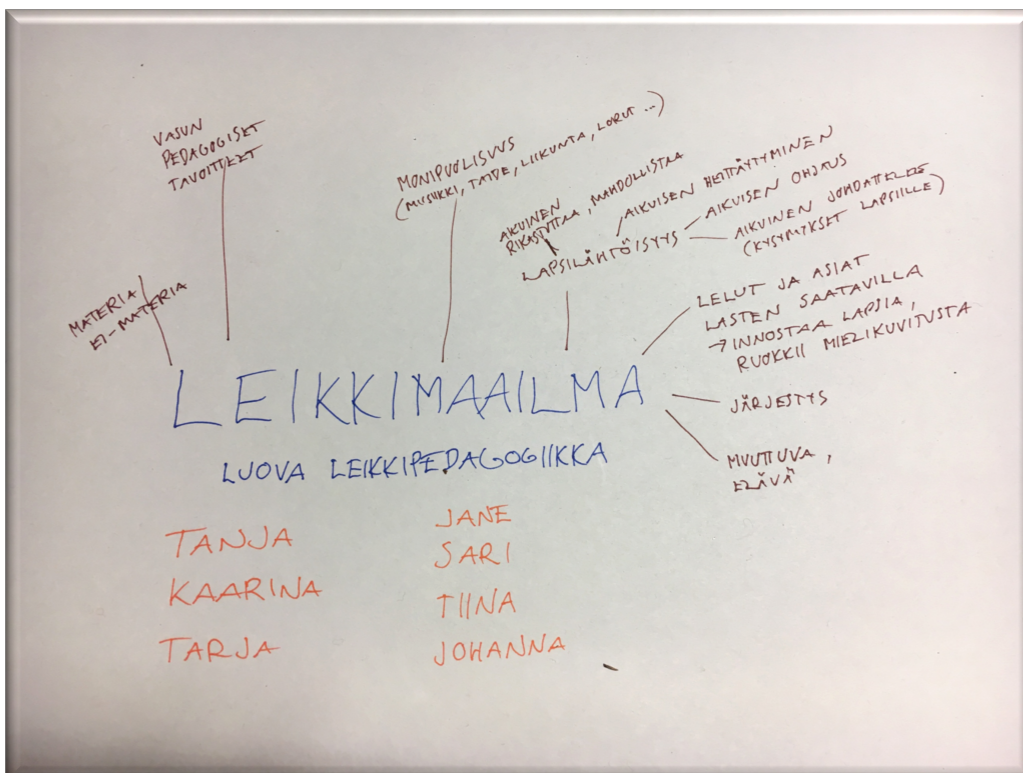 VASUN
PEDAGOGISET
TAVOITTEET
MATERIA
EI-MATERIA
MONIPUOLISUUS
(MUSIIKKI, TAIDE, LIIKUNTA, LORUT ...)
AIKUINEN
RIKASTUTTAA, MAHDOLLISTAA
AIKUISEN HEITTÄYTYMINEN
AIKUISEN OHJAUS
AIKUINEN JOHDATTELEE
(KYSYMYKSET LAPSILLE)
LAPSILÄHTÖISYYS
LELUT JA ASIAT
LASTEN SAATAVILLA
→ INNOSTAA LAPSIA,
RUOKKII MIELIKUVITUSTA
JÄRJESTYS
MUUTTUVA,
ELÄVÄ
LEIKKIMAAILMA
LUOVA LEIKKIPEDAGOGIIKKA
TANJA
KAARINA
TARJA
JANE
SARI
TIINA
JOHANNA